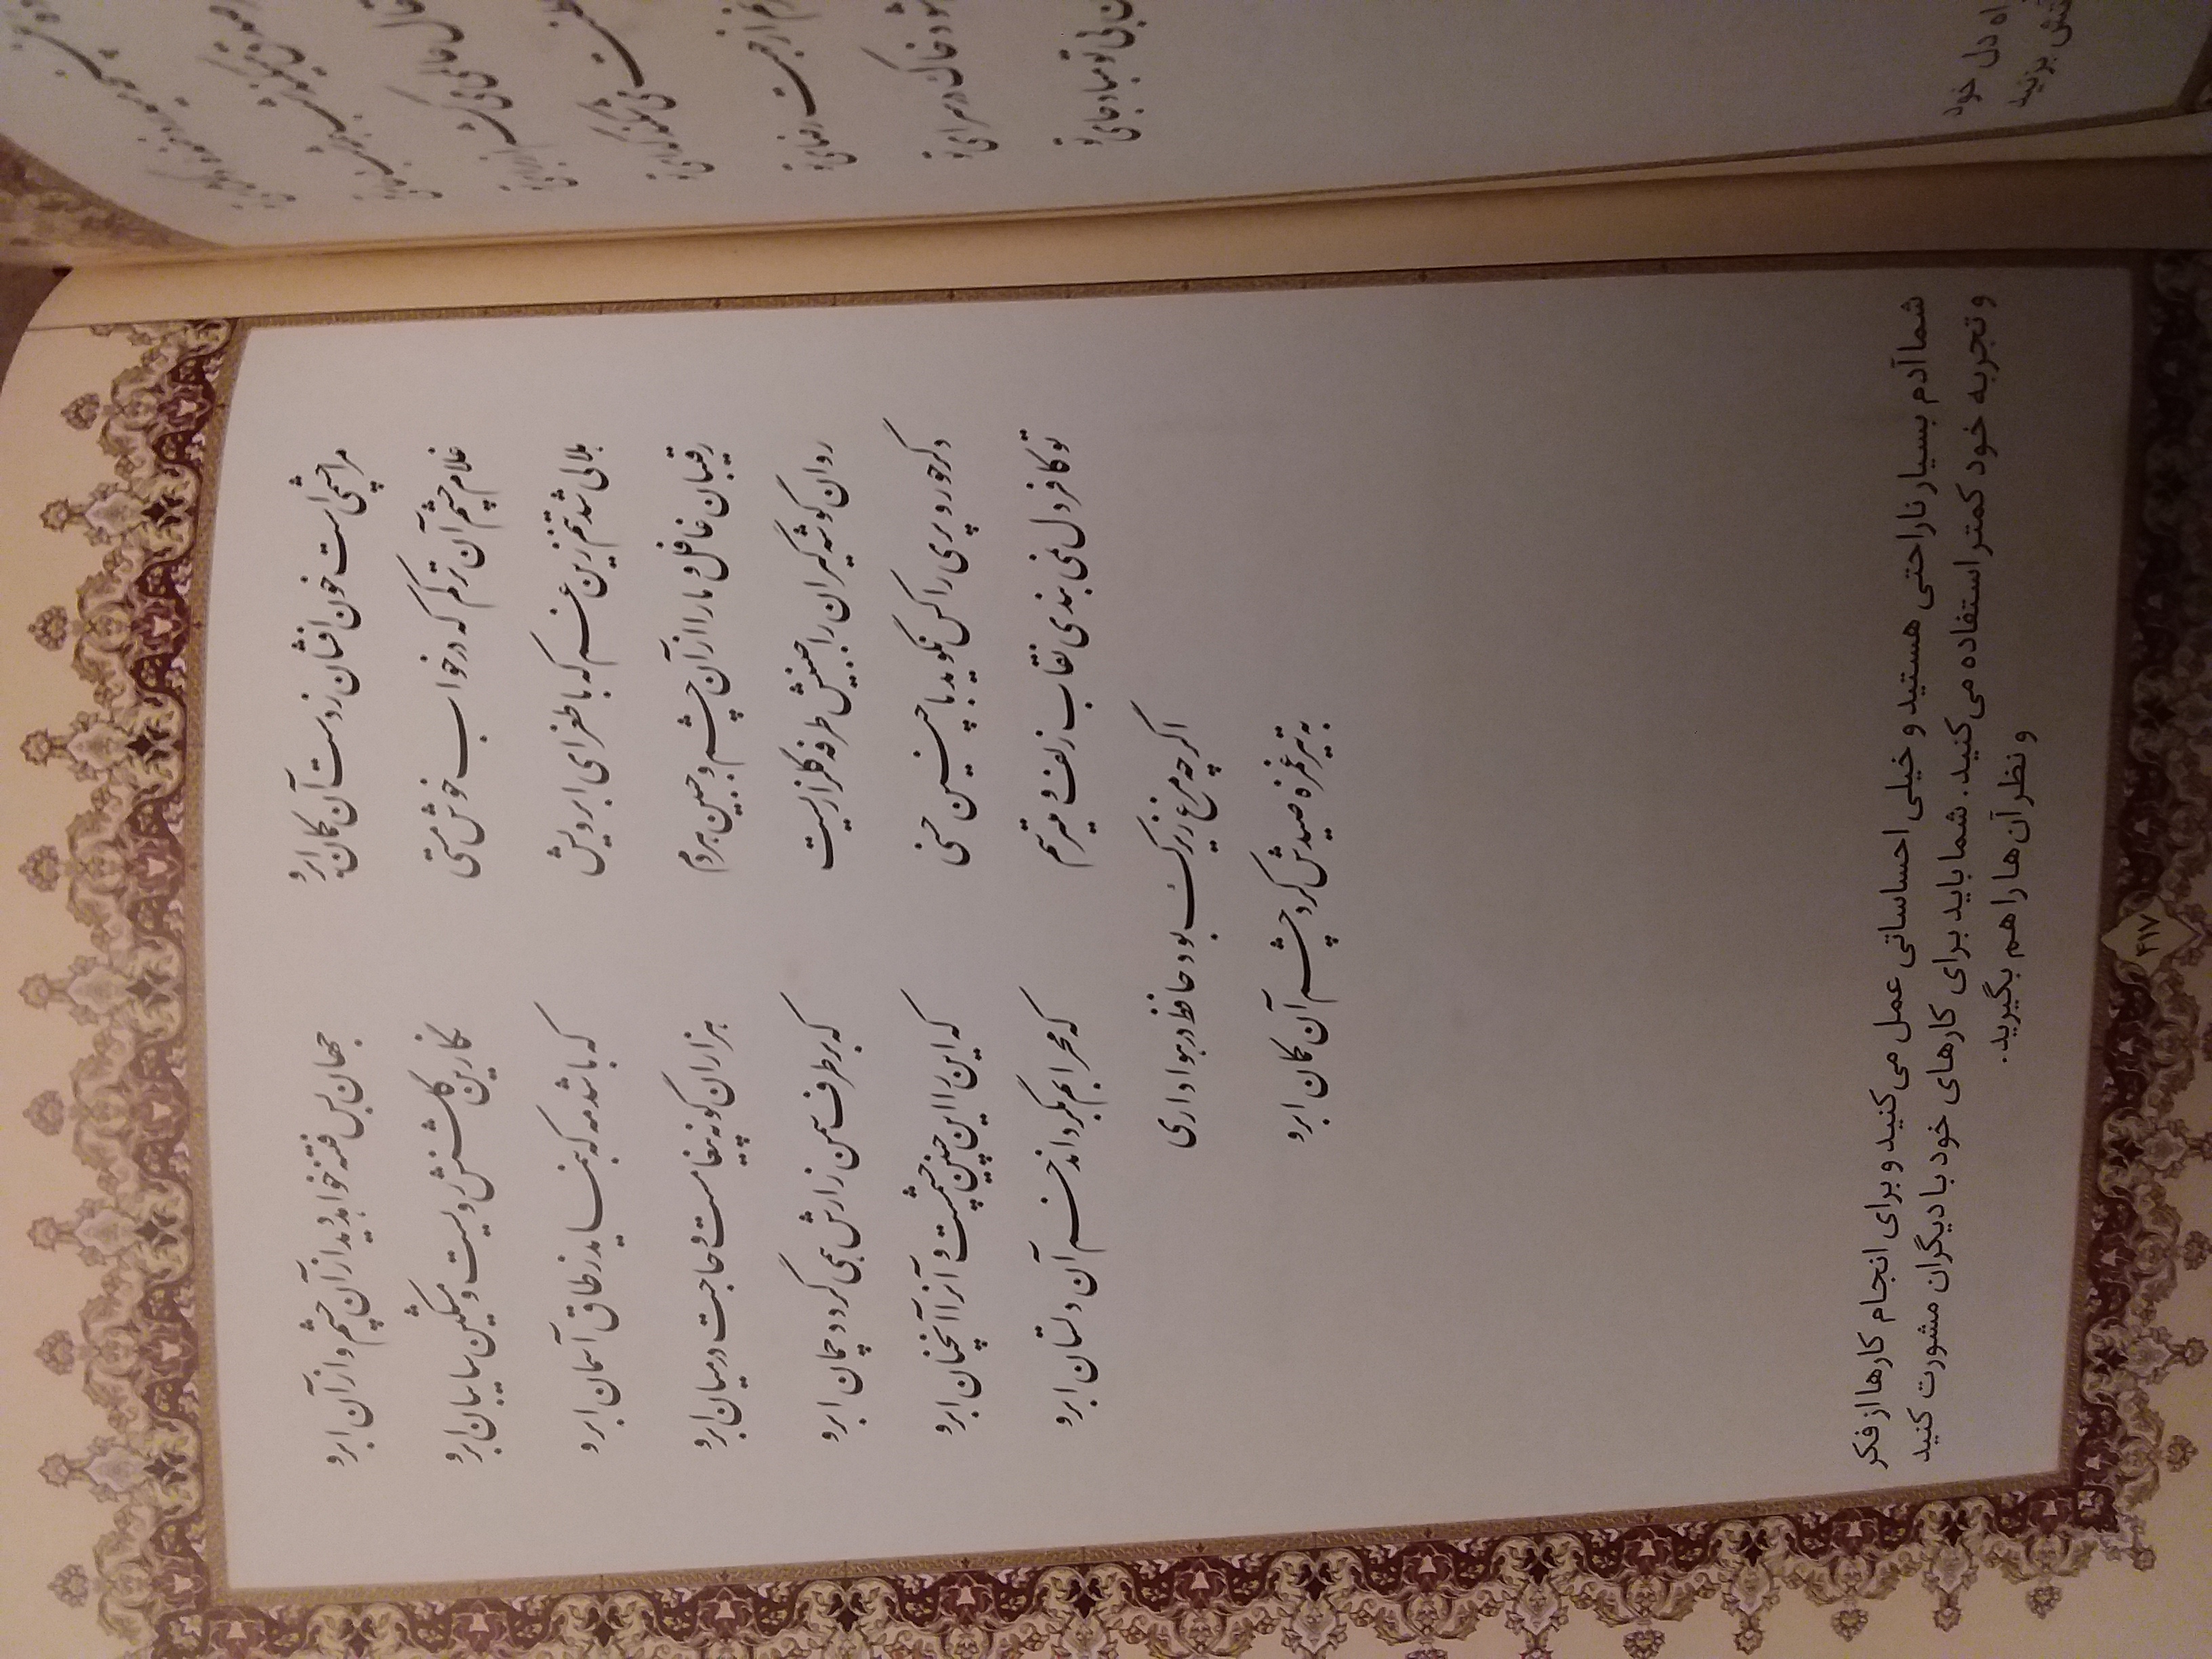 مرا چشمی است خون افشان ز دست آن کمان ابرو
جهان بس فتنه خواهد دید از آن چشم و از آن ابرو
غلام چشم آن ترکم که در خواب خوش مستی
نگارین گلشنش رویست و مشکین سایبان ابرو
هلالی شد تنم زین غم که با طغرای ابرویش
که باشد مه که بنماید ز طاق آسمان ابرو
رقیبان غافل و ما را از آن چشم و جبین هر دم
هزاران گونه پیغامست و حاجب در میان ابرو
روان گوشه گیران را جبینش طرفه گلزاریست
که بر طرف سمن زارش همی گردد چمان ابرو
دگر حور و پری را کس نگوید با چنین حسنی
که این را این چنین چشمست و آن را آنچنان ابرو
تو کافر دل نمی بندی نقاب زلف و می ترسم
که محرابم بگرداند خم آن دلستان ابرو
اگر چه مرغ زیرک بود حافظ در هواداری
به تیر غمزه صیدش کرد چشم آن کمان ابرو
شما آدم بسیار ناراحتی هستید و خیلی احساساتی عمل می کنید و برای انجام کارها از فکر
و تجربه خود کمتر استفاده می کنید. شما باید برای کارهای خود با دیگران مشورت کنید
و نظر آن ها را هم بگیرید.
۴۱۷